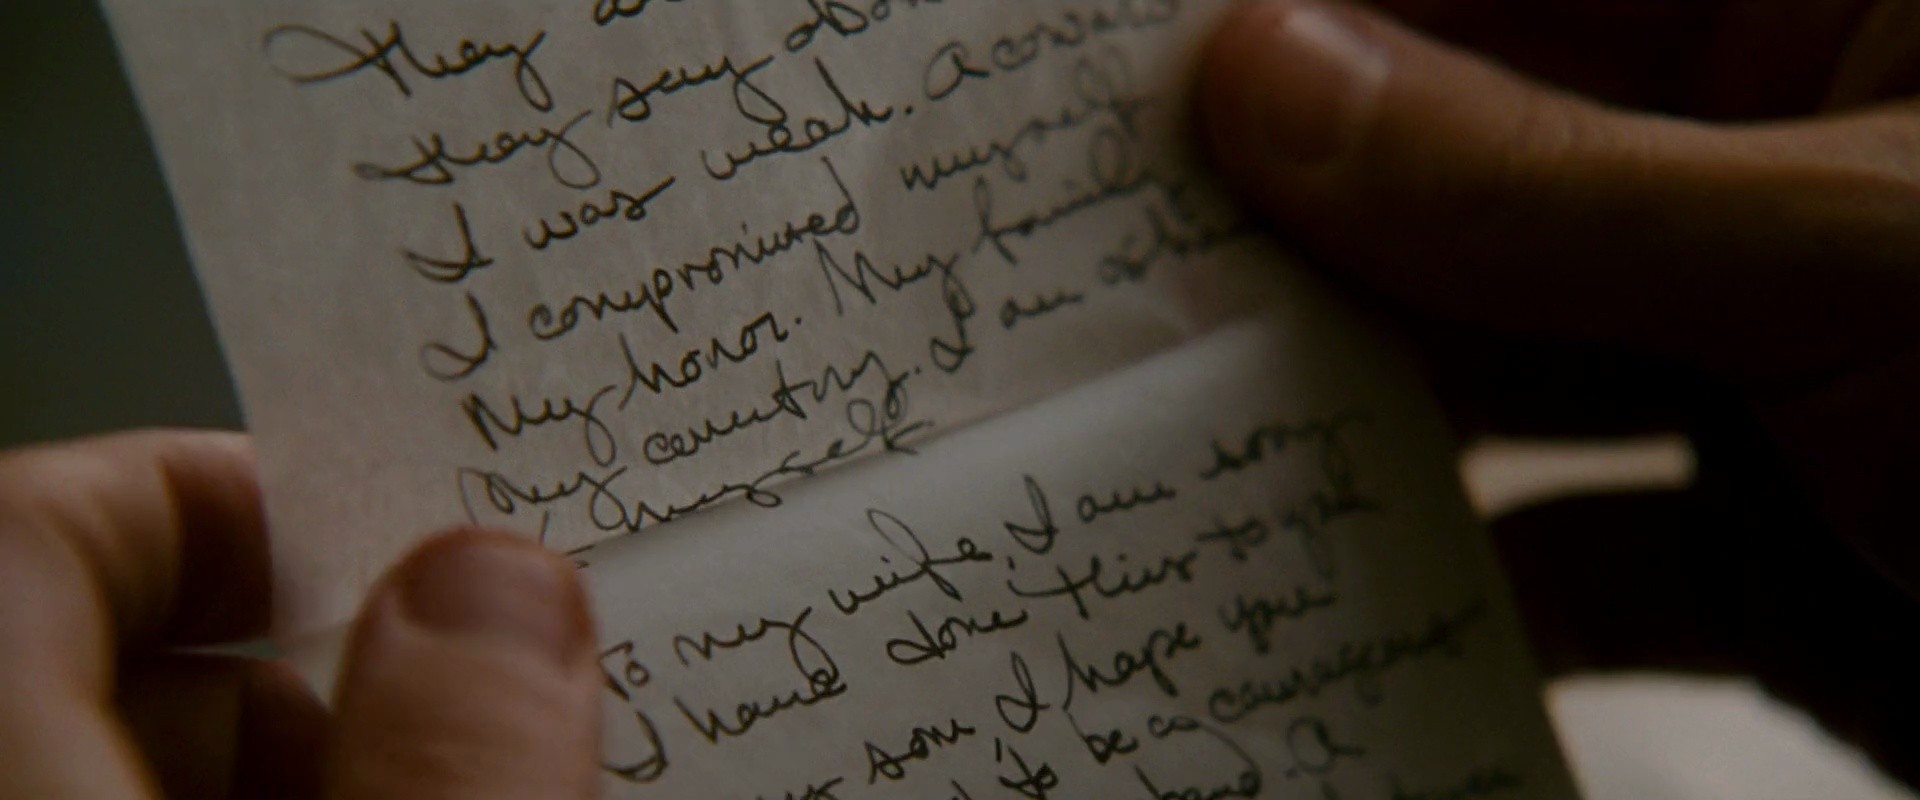 They
they say
I was weak. A coward
I compromised myself
My honor. My family
My country. I am ashamed
myself
To my wife, I am sorry
I have done this to you
son I hope you
to be a courageous
A